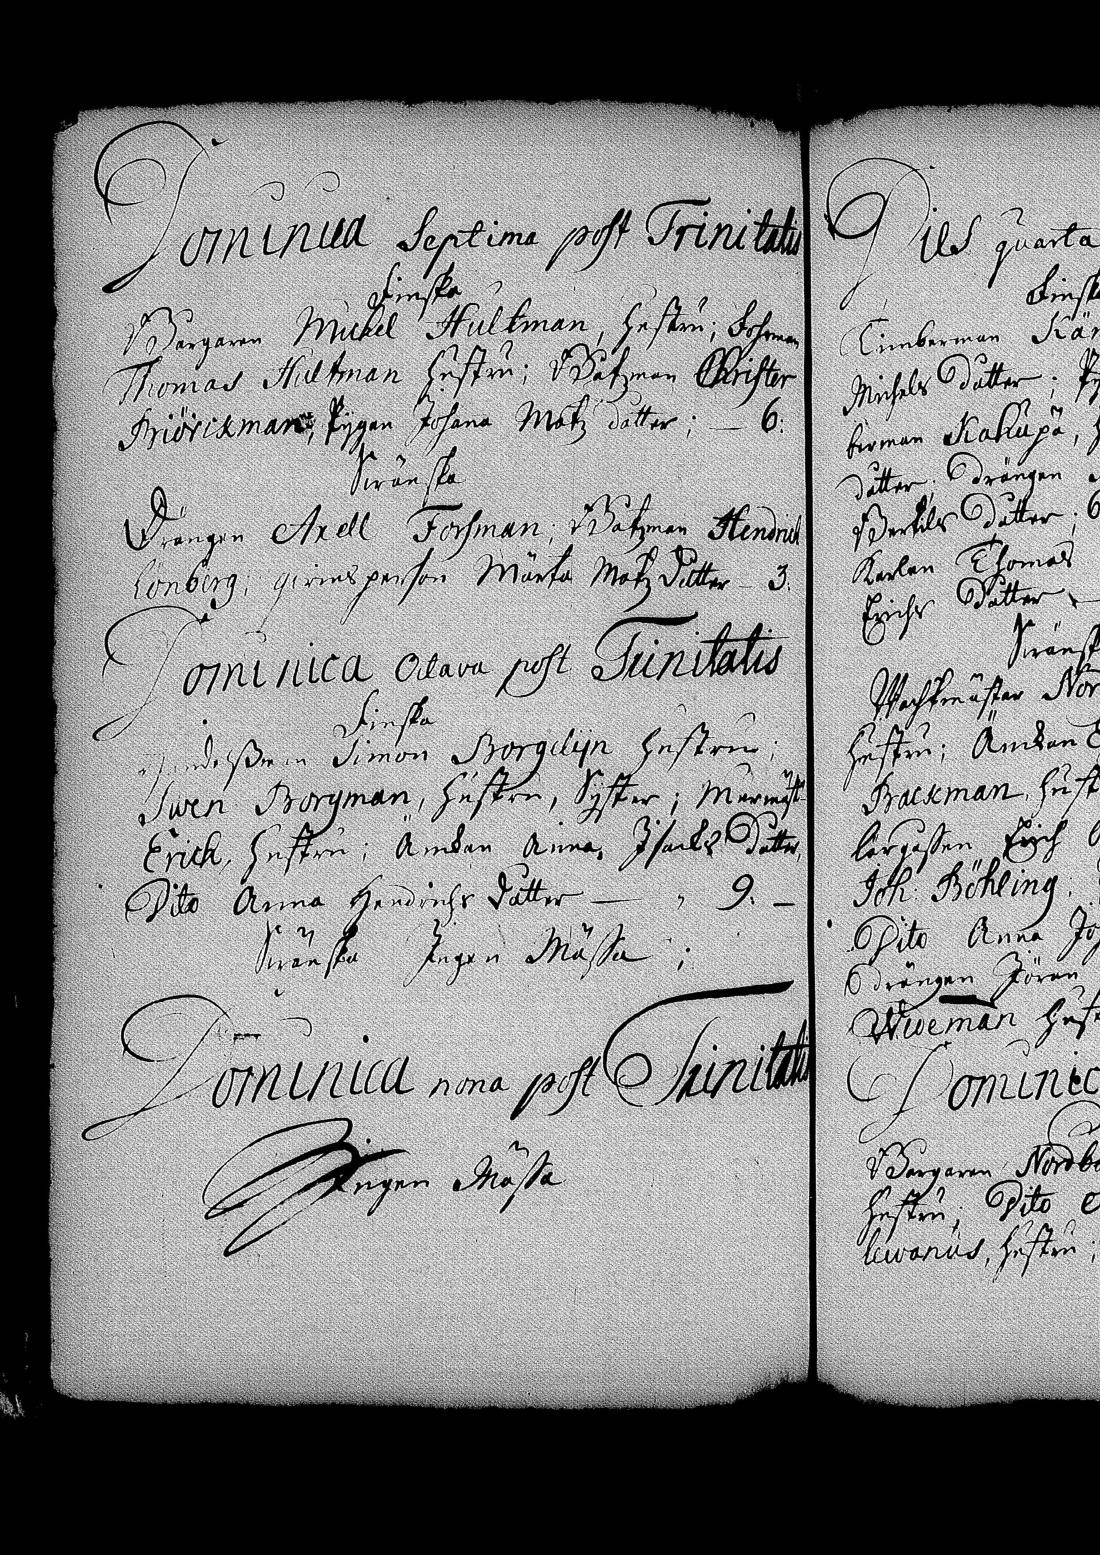 Dominica Septima post Trinitatis
Finska
Borgaren Michel Hultman, hustru; Fohrman
Thomas Hultman hustru; Båtzman Christer
Friörickman, Pygan Johana Matz datter; — 6:
Swänska
Drängen Axell Forssman; Båtzman Hendrich
Lönberg; qwinsperson Märta Matz Datter — 3.
Dominica Octava post Trinitatis
Finska
Simon Borgelijn hustru;
Swen Borgman, hustru, Syster; Murmäst
Erich, hustru; Änkan Anna, Isacks Datter,
Dito Anna Hendrichs Datter — 9. —
Swänska Ingen Mässa;
Dominica nona post Trinitatis
Ingen Mässa
Dies quarta
Finska
Timberman
Michels Datter;
berman Kakupä,
datter; Drängen
Bertils Datter;
Karlen Thomas
Erichs Datter —
Swänsk
Wachtmäster Nor
hustru; Änkan
Backman, hust
Erich
Joh: Böhling;
Dito Anna Jo
drängen Jöran
Wideman hust
Dominic
Borgaren Nordbo
hustru; Dito
lewanus, hustru;